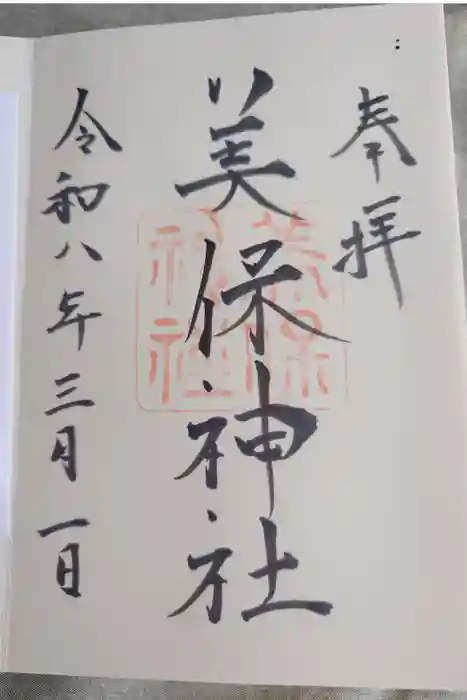 奉拝
美保神社
美保神社
令和八年三月一日